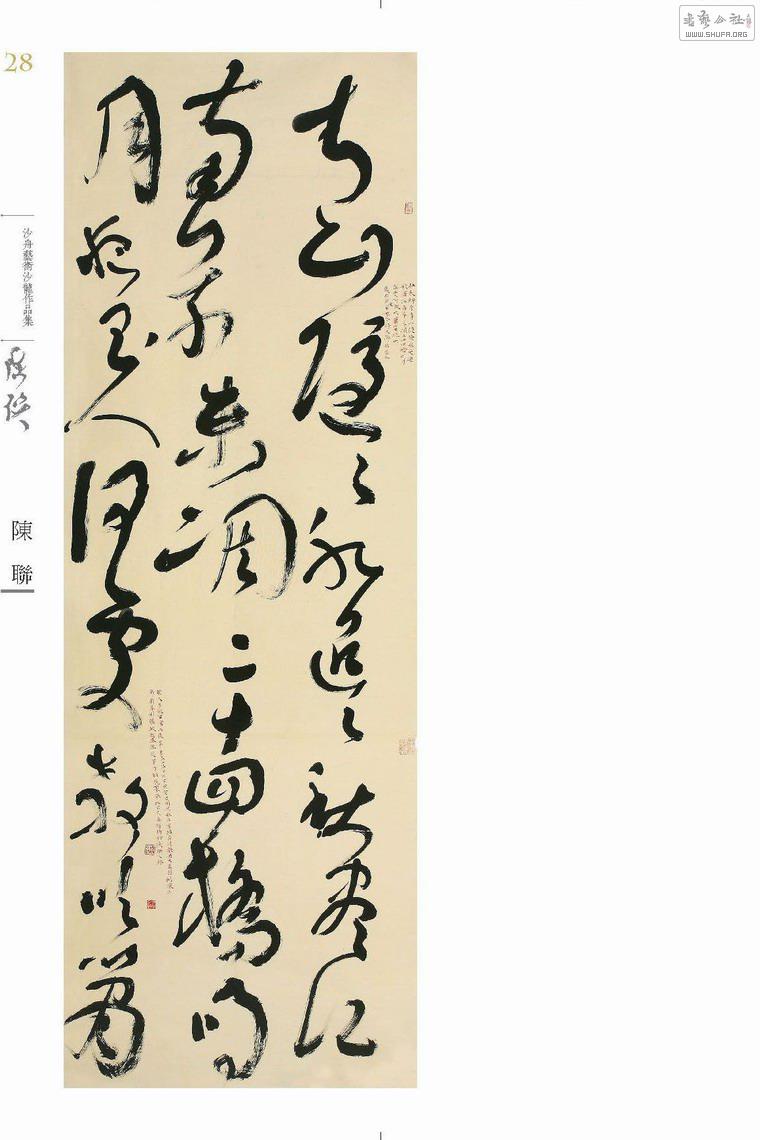 書藝公社
WWW.SHUFA.ORG
28
沙舟藝術沙龍作品集
陳聯
青山隱〻水迢〻秋盡江
南草未凋二十四橋明
月夜玉人何處教吹簫